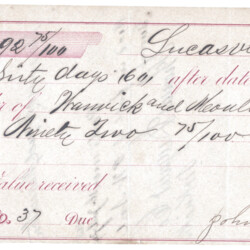 92 75/100 Lucasv
Sixty days after date
r of Warwick and
Ninety Two 75/100
Value received
No. 37 Due John